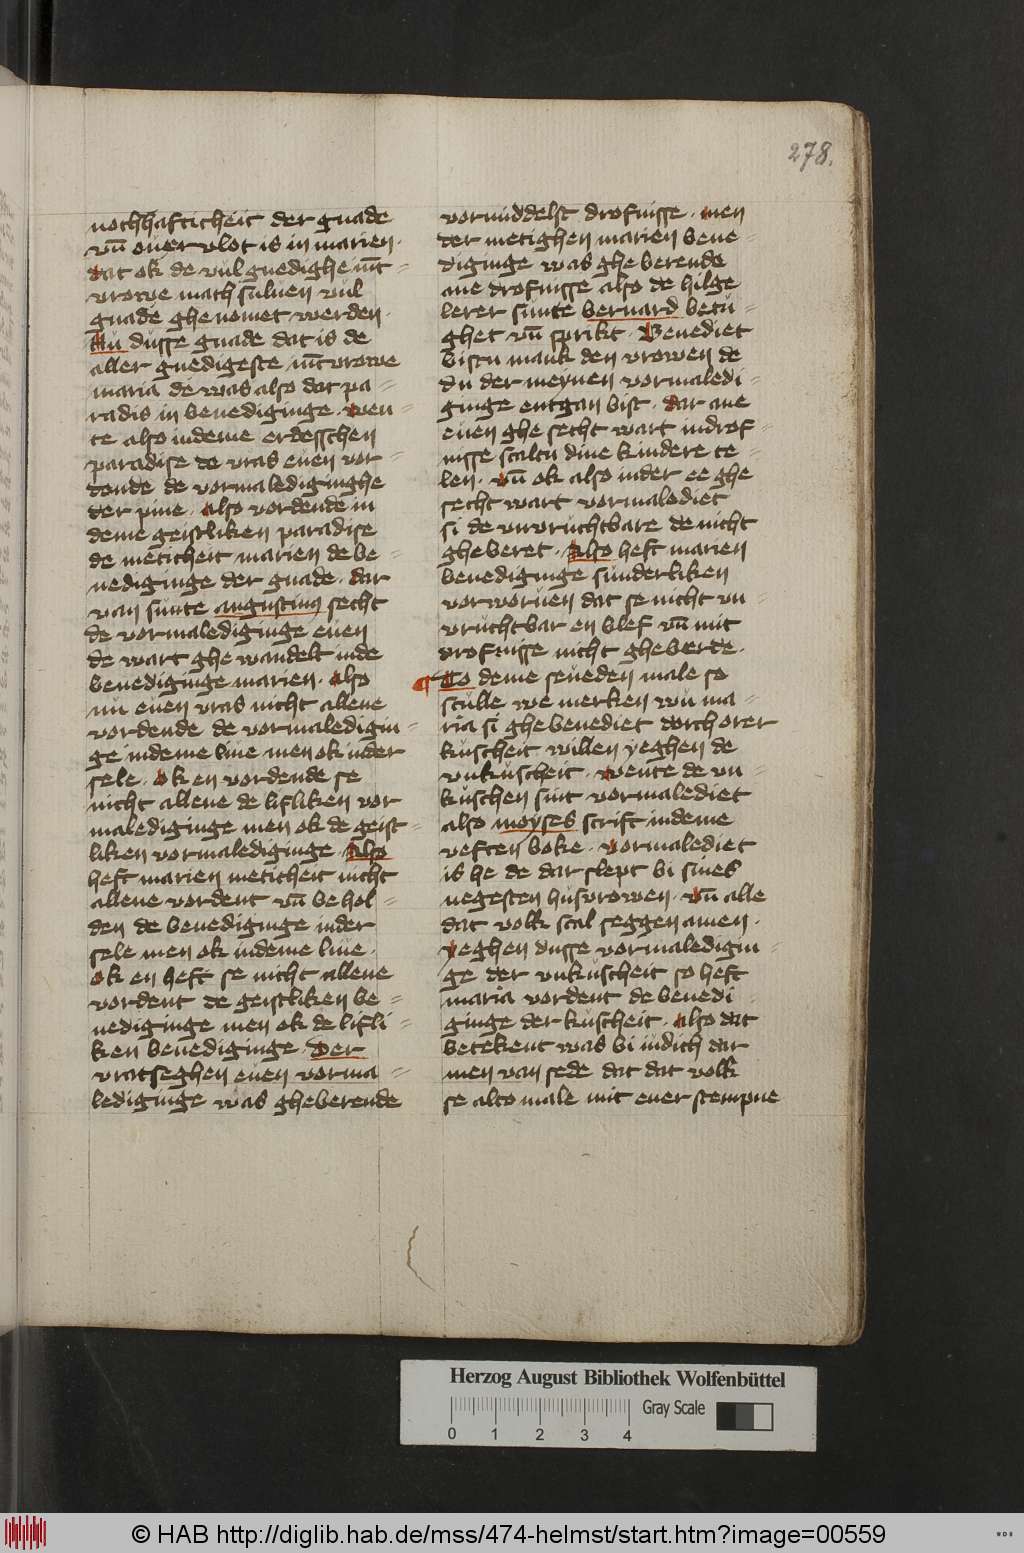 278.
nochhafticheit der gnade
vnd ouer vlot is in marien.
dat ok de vul gnedighe iunct=
vrowe mach suluen vul
gnade ghenomet werden.
Nu dusse gnade dat is de
aller gnedigeste iunctvrowe
maria de was also dat pa=
radis in benediginge. wen=
te also indeme erdesschen
paradise de vras euen vor=
dende de vormalediginghe
der pine. also vordende in
deme geistliken paradise
de meticheit marien de be=
nediginge der gnade. dar
van sunte augustinus secht
de vormalediginge euen
de wart ghe wandelt inde
benediginge marien. also
nu euen vras nicht allene
vordende de vormaledigin=
ge indeme liue men ok inder
sele. ok en vordende se
nicht allene de lifliken vor
malediginge men ok de geist=
liken vormalediginge. Also
heft marien meticheit nicht
allene vordent vnd behol=
den de benediginge inder
sele men ok indeme liue.
ok en heft se nicht allene
vordent de geistliken be=
nediginge men ok de lifli=
ken benediginge. Der
vratseghen euen vorma=
lediginge was gheberende
vormiddelst drofnisse. men
der metighen marien bene=
diginge was ghe berende
ane drofnisse also de hilge
lerer sunte bernard betu=
ghet vnd sprikt. Benediet
bistu mank den vrowen de
du der meynen vormaledi=
ginge entgan bist. dar ane
euen ghe secht wart indrof=
nisse scaltu dine kindere te=
len. vnd ok also inder ee ghe
secht wart vormalediet
si de vnvruchtbare de nicht
gheberet. Also heft marien
benediginge sunderliken
vorworuen dat se nicht vn=
vruchtbar en blef vnd mit
drofnisse nicht gheberde.
¶ To deme seueden male so
sculle we merken wu ma=
ria si ghebenediet dorch orer
kuscheit willen yeghen de
vnkuscheit. wente de vn=
kuschen sint vormalediet
also moyses scrift indeme
veften boke. vormalediet
is he de dar slept bi sines
negesten husvrowen. vnd alle
dat volk scal seggen amen.
yeghen dusse vormaledigin=
ge der vnkuscheit so heft
maria vordent de benedi=
ginge der kuscheit. also dat
betekent was bi iudich dar
men van sede dat dat volk
se alto male mit ener stempne
Herzog August Bibliothek Wolfenbüttel
0 1 2 3 4
Gray Scale
© HAB http://diglib.hab.de/mss/474-helmst/start.htm?image=00559